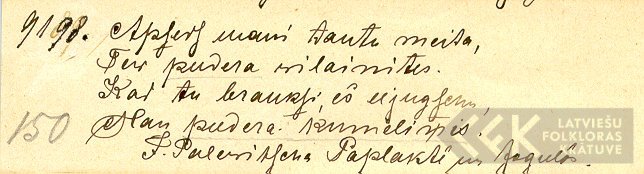 9198. Apsedz mani tautu meita,
Tew pudera wilainites.
Kad tu brauksi, es eijugschu,
150 Man pudera kumeliņis.
J. Palewitscha Paplaktē un Zagulos.
LATVIEŠU
FOLKLORAS
KRĀTUVE